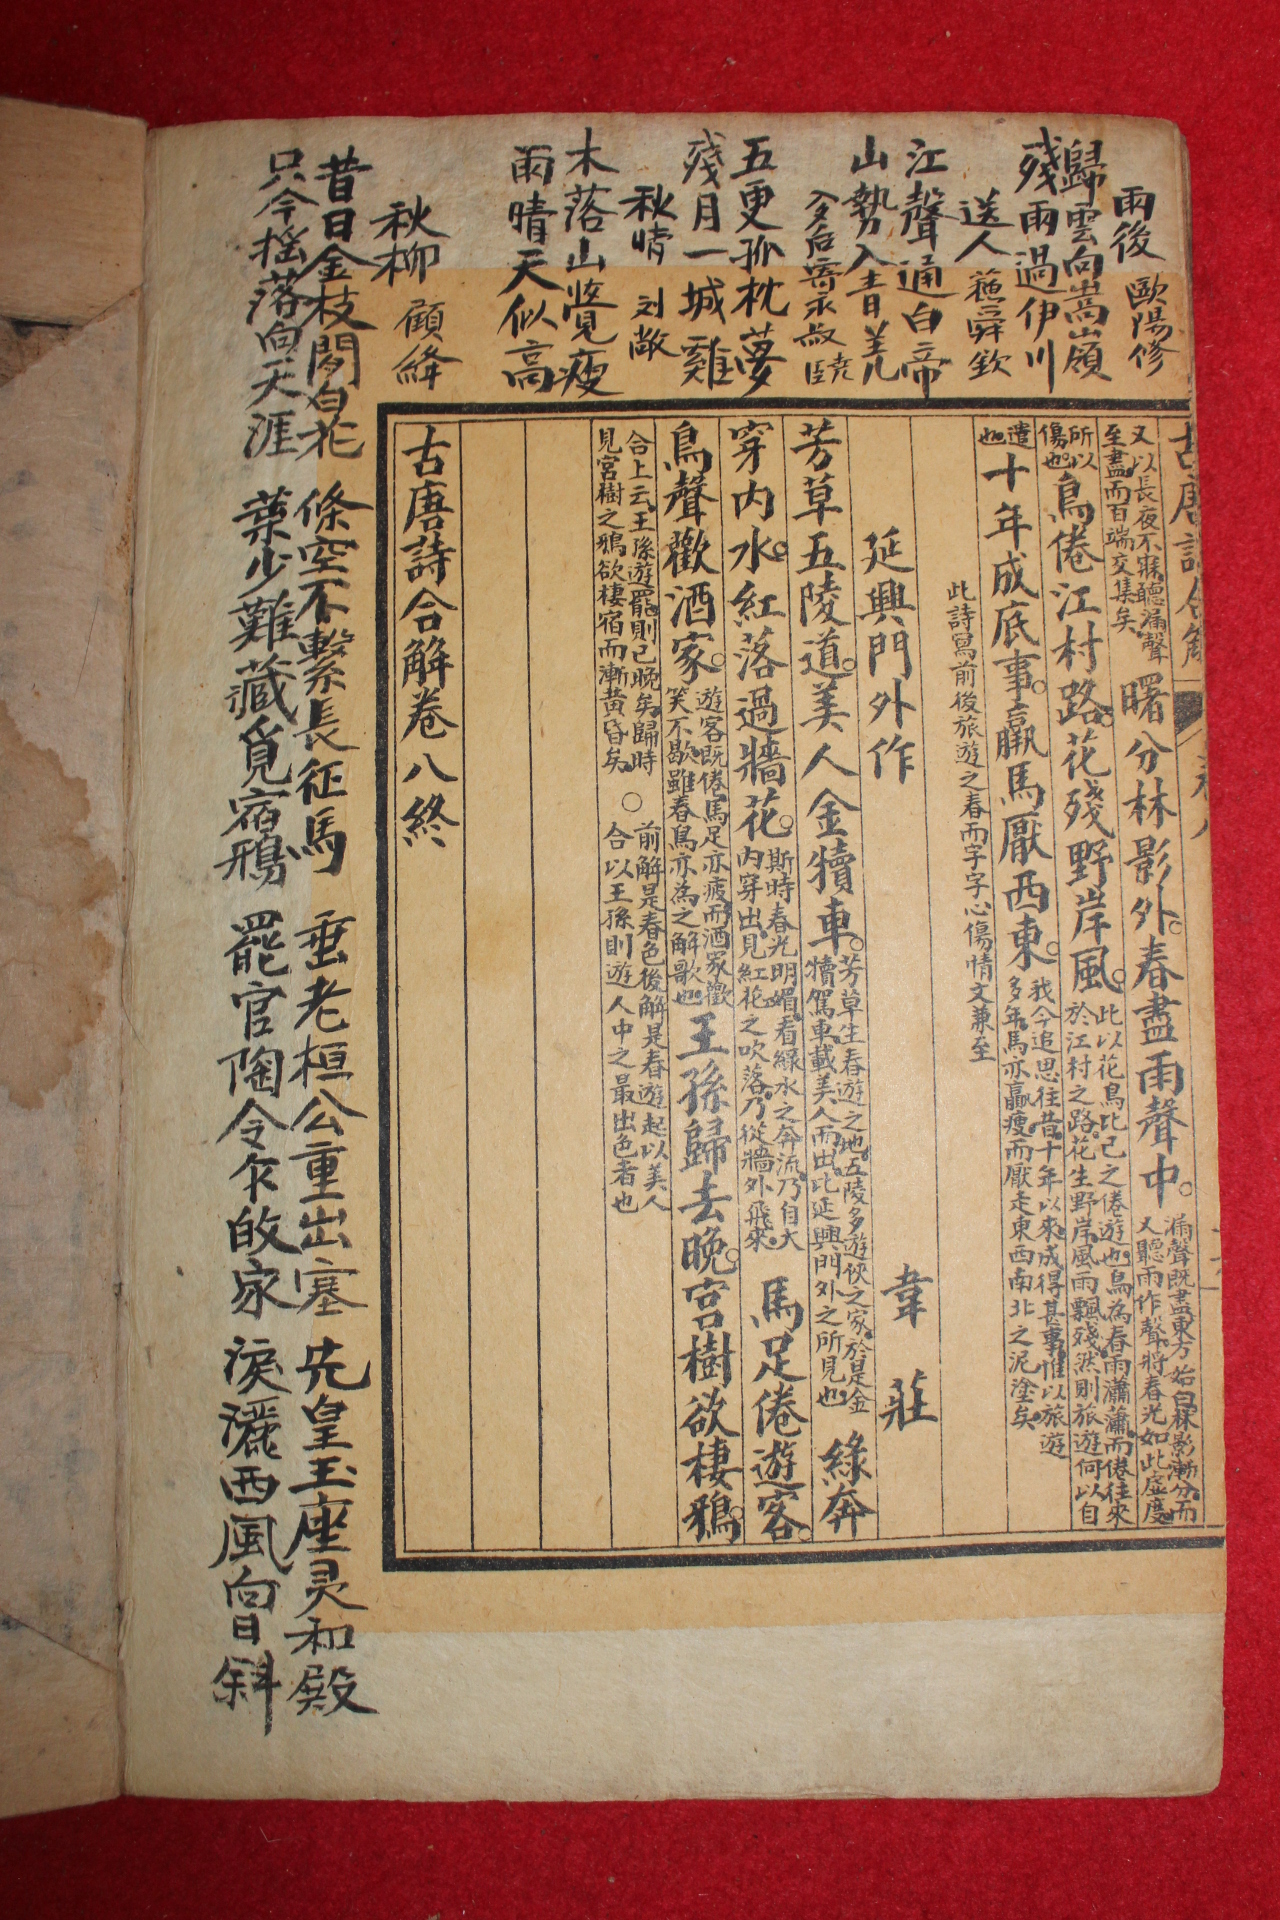 雨後 歐陽修
歸雲向嵩嶺
殘雨過伊川
送人 蘓舜欽
江聲通白帝
山勢入青羌
多后寄永叔 堯臣
五更孤枕夢
殘月一城雞
秋晴 刘敞
木落山覺瘦
雨晴天似高
秋柳 顧絳
昔日金枝間白花
只今揺落向天涯
條空不繫長征馬
葉少難藏覓宿鴉
垂老桓公重出塞
罷官陶令乍敀家
先皇玉座灵和殿
淚灑西風向日斜
古唐詩合解
又以長夜不寐聽漏聲
至盡而百端交集矣
曙分林影外春盡雨聲中
漏聲既盡東方始白林影漸分而
又聽雨作聲將春光如此虛度
所以
傷也
鳥倦江村路花殘野岸風
此以花鳥比己之倦遊也鳥為春雨瀟瀟而倦往來
於江村之路花生野岸風雨飄殘然則旅遊何以自
遣
也
十年成底事羸馬厭西東
我今追思往昔十年以來成得甚事惟以旅遊
多年馬亦羸瘦而厭走東西南北之泥塗矣
此詩寫前後旅遊之春而字字心傷情文兼至
延興門外作 韋莊
芳草五陵道美人金犢車
芳草生春遊之地五陵多遊俠之家於是金
犢駕車載美人而出比延興門外之所見也
綠奔
穿內水紅落過牆花
斯時春光明媚看綠水之奔流乃自大
內穿出見紅花之吹落乃從牆外飛來
馬足倦遊客
鳥聲歡酒家
遊客既倦馬足亦疲而酒家歡
笑不歇雖春鳥亦為之解歌也
王孫歸去晚宮樹欲棲鴉
合上云王孫遊罷則已晚矣歸時
見宮樹之鴉欲棲宿而漸黃昏矣
○
前解是春色後解是春遊起以美人
合以王孫則遊人中之最出色者也
古唐詩合解卷八終